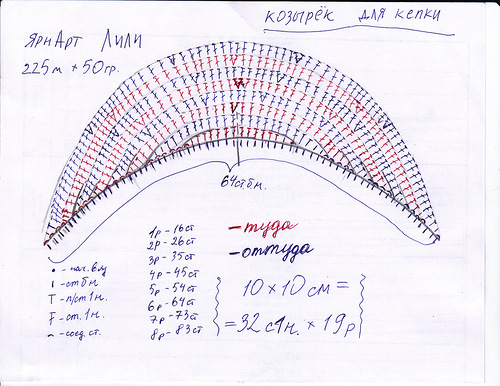 КОЗЫРЁК ДЛЯ КЕПКИ
ЯрнАрт Лили
225м * 50гр.
64стбн.
1р - 16ст
2р - 26ст
3р - 35ст
4р - 45ст
5р - 54ст
6р - 64ст
7р - 73ст
8р - 83ст
- туда
- оттуда
- нач.
- стбн
- п/ст1н.
- ст.1н.
- соед.ст.
10 х 10 см =
= 32 с1н. х 19р